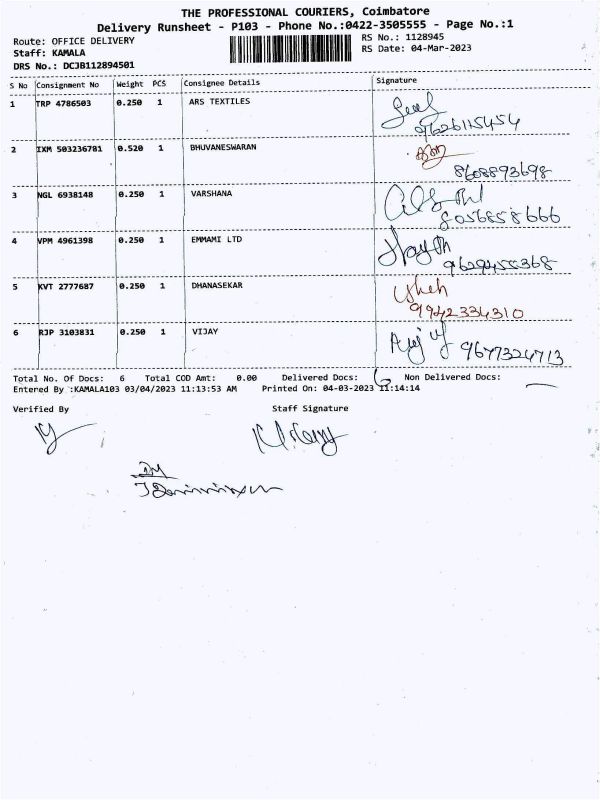 THE PROFESSIONAL COURIERS, Coimbatore
Delivery Runsheet - P103 - Phone No.:0422-3505555 - Page No.:1
Route: OFFICE DELIVERY RS No.: 1128945
Staff: KAMALA RS Date: 04-Mar-2023
DRS No.: DCJB112894501
S No Consignment No Weight PCS Consignee Details Signature
1 TRP 4786503 0.250 1 ARS TEXTILES
9626115454
2 IXM 503236781 0.520 1 BHUVANESWARAN
8608893698
3 NGL 6938148 0.250 1 VARSHANA
8056858666
4 VPM 4961398 0.250 1 EMMAMI LTD
5 KVT 2777687 0.250 1 DHANASEKAR
9942334310
6 RJP 3103831 0.250 1 VIJAY
9677324713
Total No. Of Docs: 6 Total COD Amt: 0.00 Delivered Docs: 6 Non Delivered Docs:
Entered By :KAMALA103 03/04/2023 11:13:53 AM Printed On: 04-03-2023 11:14:14
Verified By Staff Signature